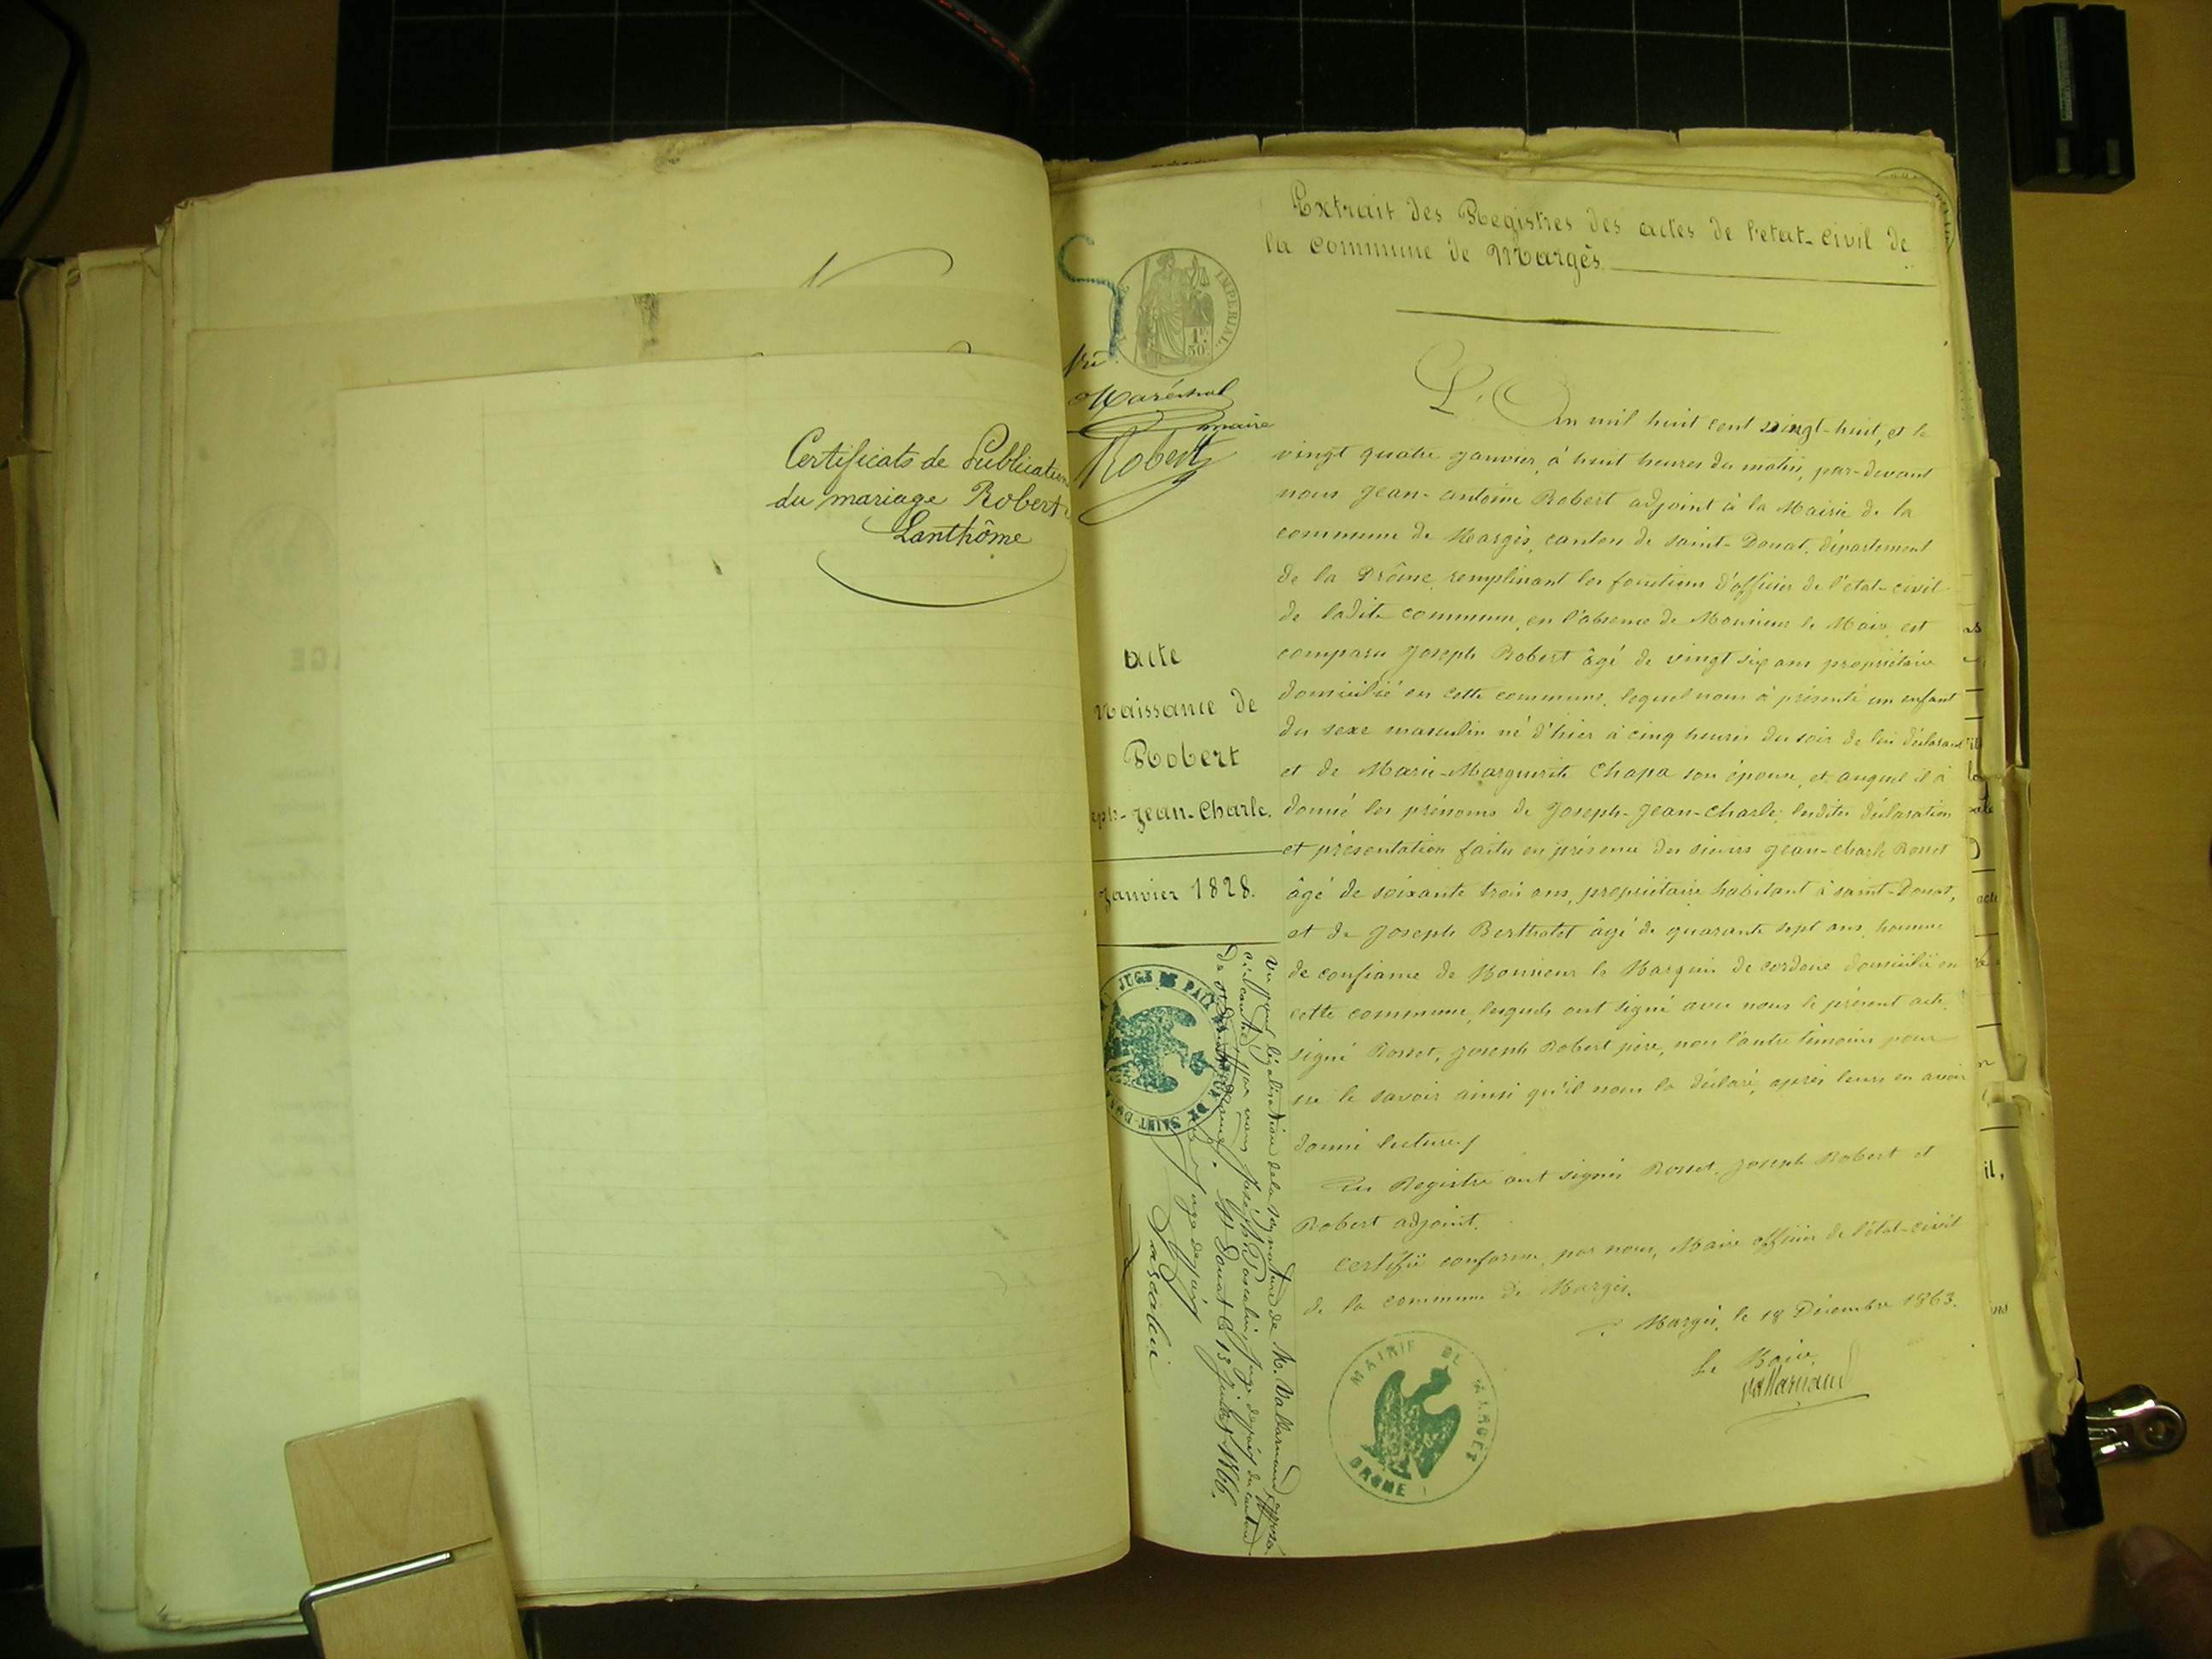 Certificats de Publication
du mariage Robert
Lanthôme
IMPERIAL
1F
50c
Maréchal
maire
Robert
acte
Naissance de
Robert
eph-Jean-Charle.
Janvier 1828.
JUGE DE PAIX
SAINT-DONAT
Vu pour légalisation de la signature de M. Vallernaud, apposée
ci contre, par nous Joseph Pascalin, juge de paix du canton
St Donat le 15 juillet 1866.
juge de paix
Pascalin
Extrait des Registres des actes de l'etat-civil de
la commune de Margès
L'An mil huit cent vingt-huit, et le
vingt quatre janvier, à huit heures du matin, par-devant
nous Jean-antoine Robert adjoint à la Mairie de la
commune de Margès, canton de saint-Donat, département
de la Drôme, remplissant les fonctions d'officier de l'etat-civil
de ladite commune, en l'absence de Monsieur le Maire, est
comparu Joseph Robert âgé de vingt six ans propriétaire
domicilié en cette commune, lequel nous à présenté un enfant
du sexe masculin né d'hier à cinq heures du soir de lui déclarant
et de Marie-Marguerite Chapa son épouse, et auquel il à
donné les prénoms de Joseph-Jean-Charle; lesdites déclaration
et présentation faites en présence des sieurs Jean-charle Rosset
âgé de soixante trois ans, propriétaire habitant à saint-Donat,
et de Joseph Berthalet âgé de quarante sept ans, homme
de confiance de Monsieur le Marquis de cordoue domicilié en
cette commune, lesquels ont signé avec nous le présent acte.
signé Rosset, Joseph Robert père, non l'autre témoins pour
ne le savoir ainsi qu'il nous la déclaré, après leurs en avoir
donné lecture /
Au Registre ont signés Rosset, Joseph Robert et
Robert adjoint.
Certifié conforme par nous, Maire officier de l'état-civil
de la commune de Margès.
Margès, le 18 Décembre 1863.
Le Maire,
MAIRIE DE MARGES
DROME